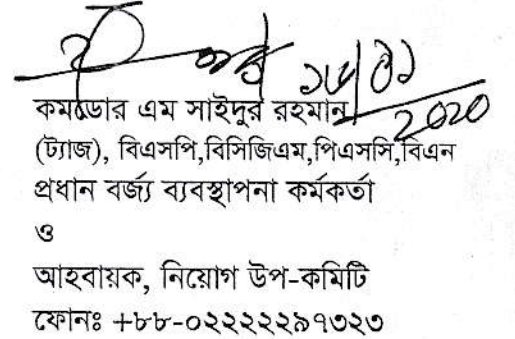 কমডোর এম সাইদুর রহমান
(ট্যাজ), বিএসপি,বিসিজিএম,পিএসসি,বিএন
প্রধান বর্জ্য ব্যবস্থাপনা কর্মকর্তা
ও
আহবায়ক, নিয়োগ উপ-কমিটি
ফোনঃ +৮৮-০২২২২২৯৭৩২৩